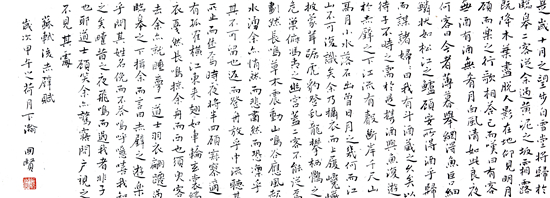 是歲十月之望步自雪堂將歸於
臨皋二客從余過黃泥之坂霜露
既降木葉盡脫人影在地仰見明月
顧而樂之行歌相答已而嘆曰有客
無酒有酒無肴月白風清如此良夜
何客曰今者薄暮舉網得魚巨口細
鱗狀如松江之鱸顧安所得酒乎歸
而謀諸婦婦曰我有斗酒藏之久矣以
待子不時之需於是攜酒與魚復遊
於赤壁之下江流有聲斷岸千尺山
高月小水落石出曾日月之幾何而江
山不可復識矣余乃攝衣而上履巉巖
披蒙茸踞虎豹登虬龍攀栖鶻之
危巢俯馮夷之幽宮蓋二客不能從焉
劃然長嘯草木震動山鳴谷應風起
水涌余亦悄然而悲肅然而恐凜乎
其不可留也返而登舟放乎中流聽其
所止而休焉時夜將半四顧寂寥適
有孤鶴橫江東來翅如車輪玄裳縞
衣戛然長鳴掠余舟而西也須臾客
去余亦就睡夢一道士羽衣翩躚過
臨皋之下揖余而言曰赤壁之遊樂
乎問其姓名俛而不答嗚呼噫嘻我知
之矣疇昔之夜飛鳴而過我者非子
也耶道士顧笑余亦驚寤開戶視之
不見其處
蘇軾後赤壁賦
歲次甲午之荷月下瀚